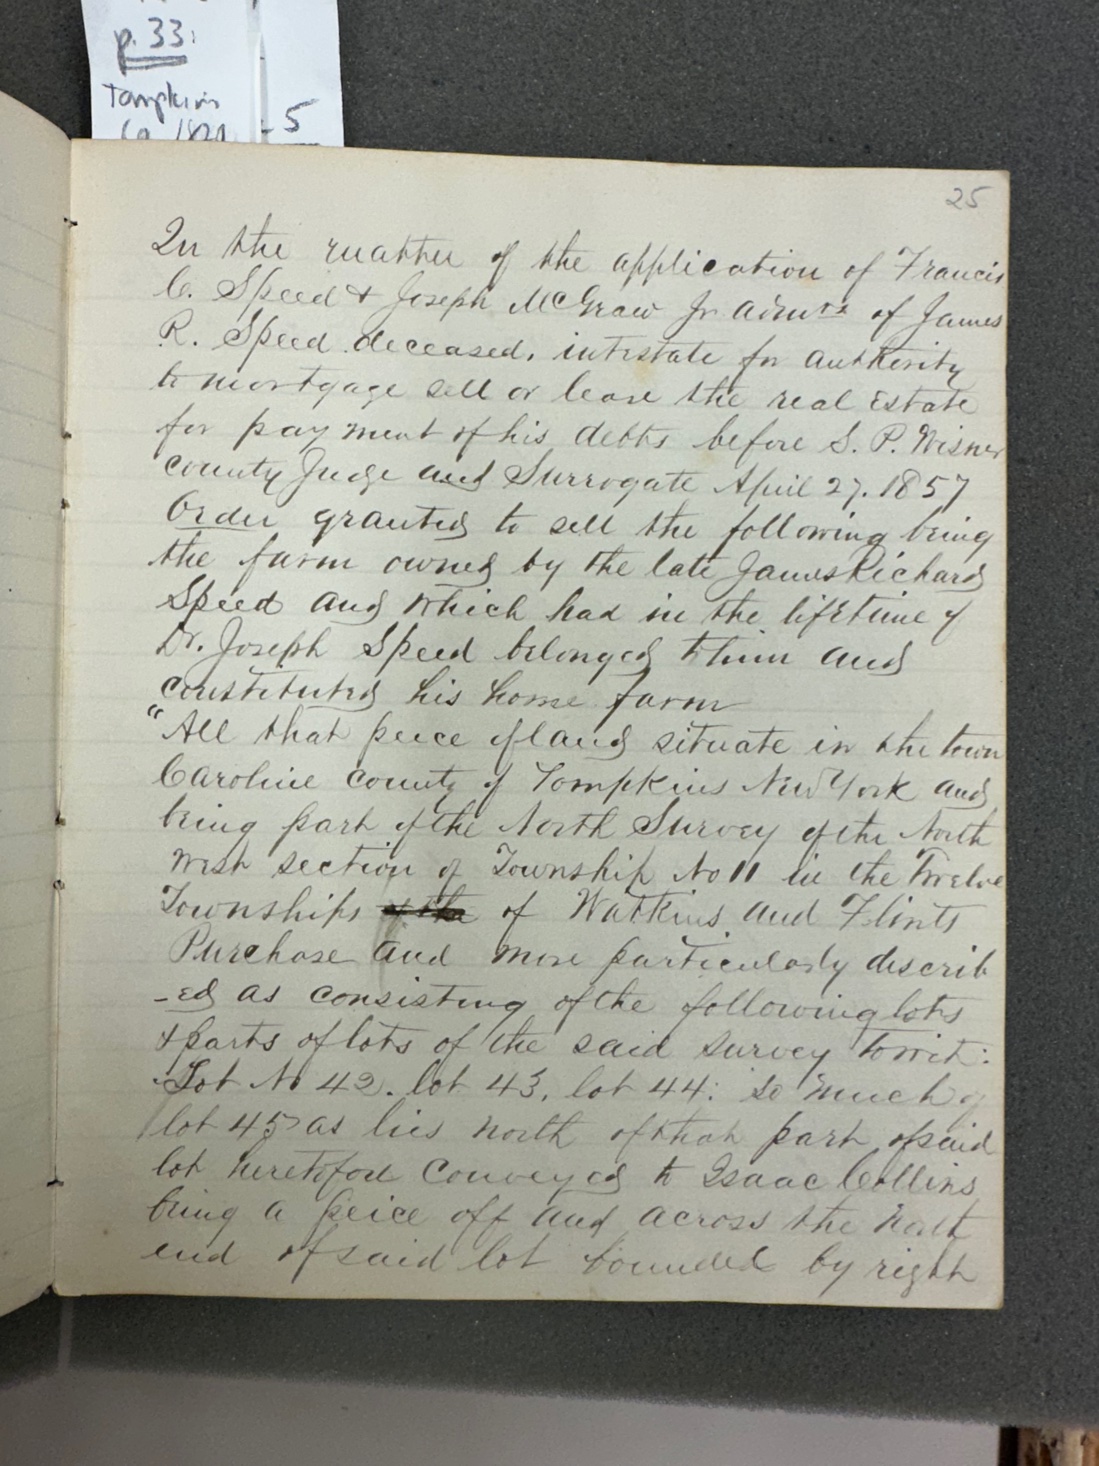 p. 33.
Tompkins
Co. 182
- 5
25
In the matter of the application of Francis
C. Speed & Joseph McGraw Jr admrs of James
R. Speed deceased, intestate for authority
to mortgage sell or lease the real Estate
for payment of his debts before S. P. Wisner
county Judge and Surrogate April 27. 1857
Order granted to sell the following being
the farm owned by the late James Richard
Speed and which had in the lifetime of
Dr. Joseph Speed belonged to him and
constituted his home farm
"All that peice of land situate in the town
Caroline county of Tompkins New York and
being part of the North Survey of the North
West section of Township No 11 in the Twelve
Townships of the of Watkins and Flints
Purchase and more particularly describ
-ed as consisting of the following lots
& parts of lots of the said survey towit:
Lot No 42. lot 43, lot 44: so much of
lot 45 as lies north of that part of said
lot heretofore conveyed to Isaac Collins
being a peice off and across the North
end of said lot bounded by right